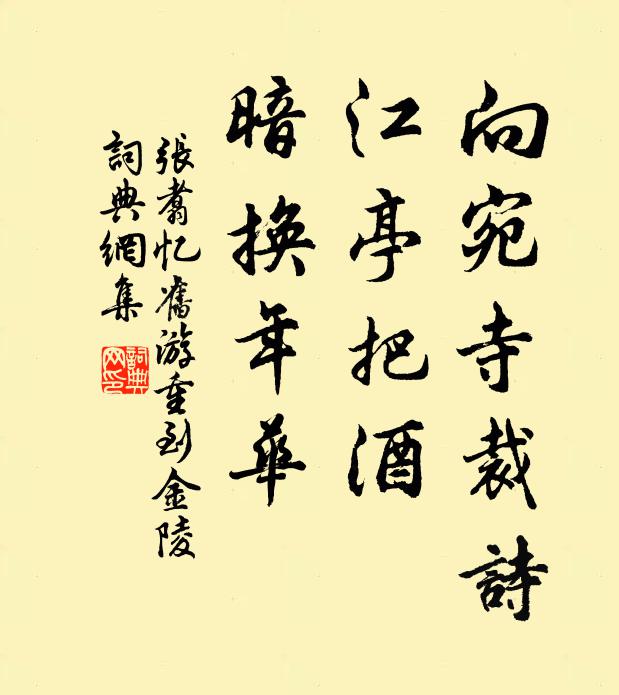 向宛寺裁詩
江亭把酒
暗換年華
張翥忆舊游重到金陵
詞典網集
詞典网印